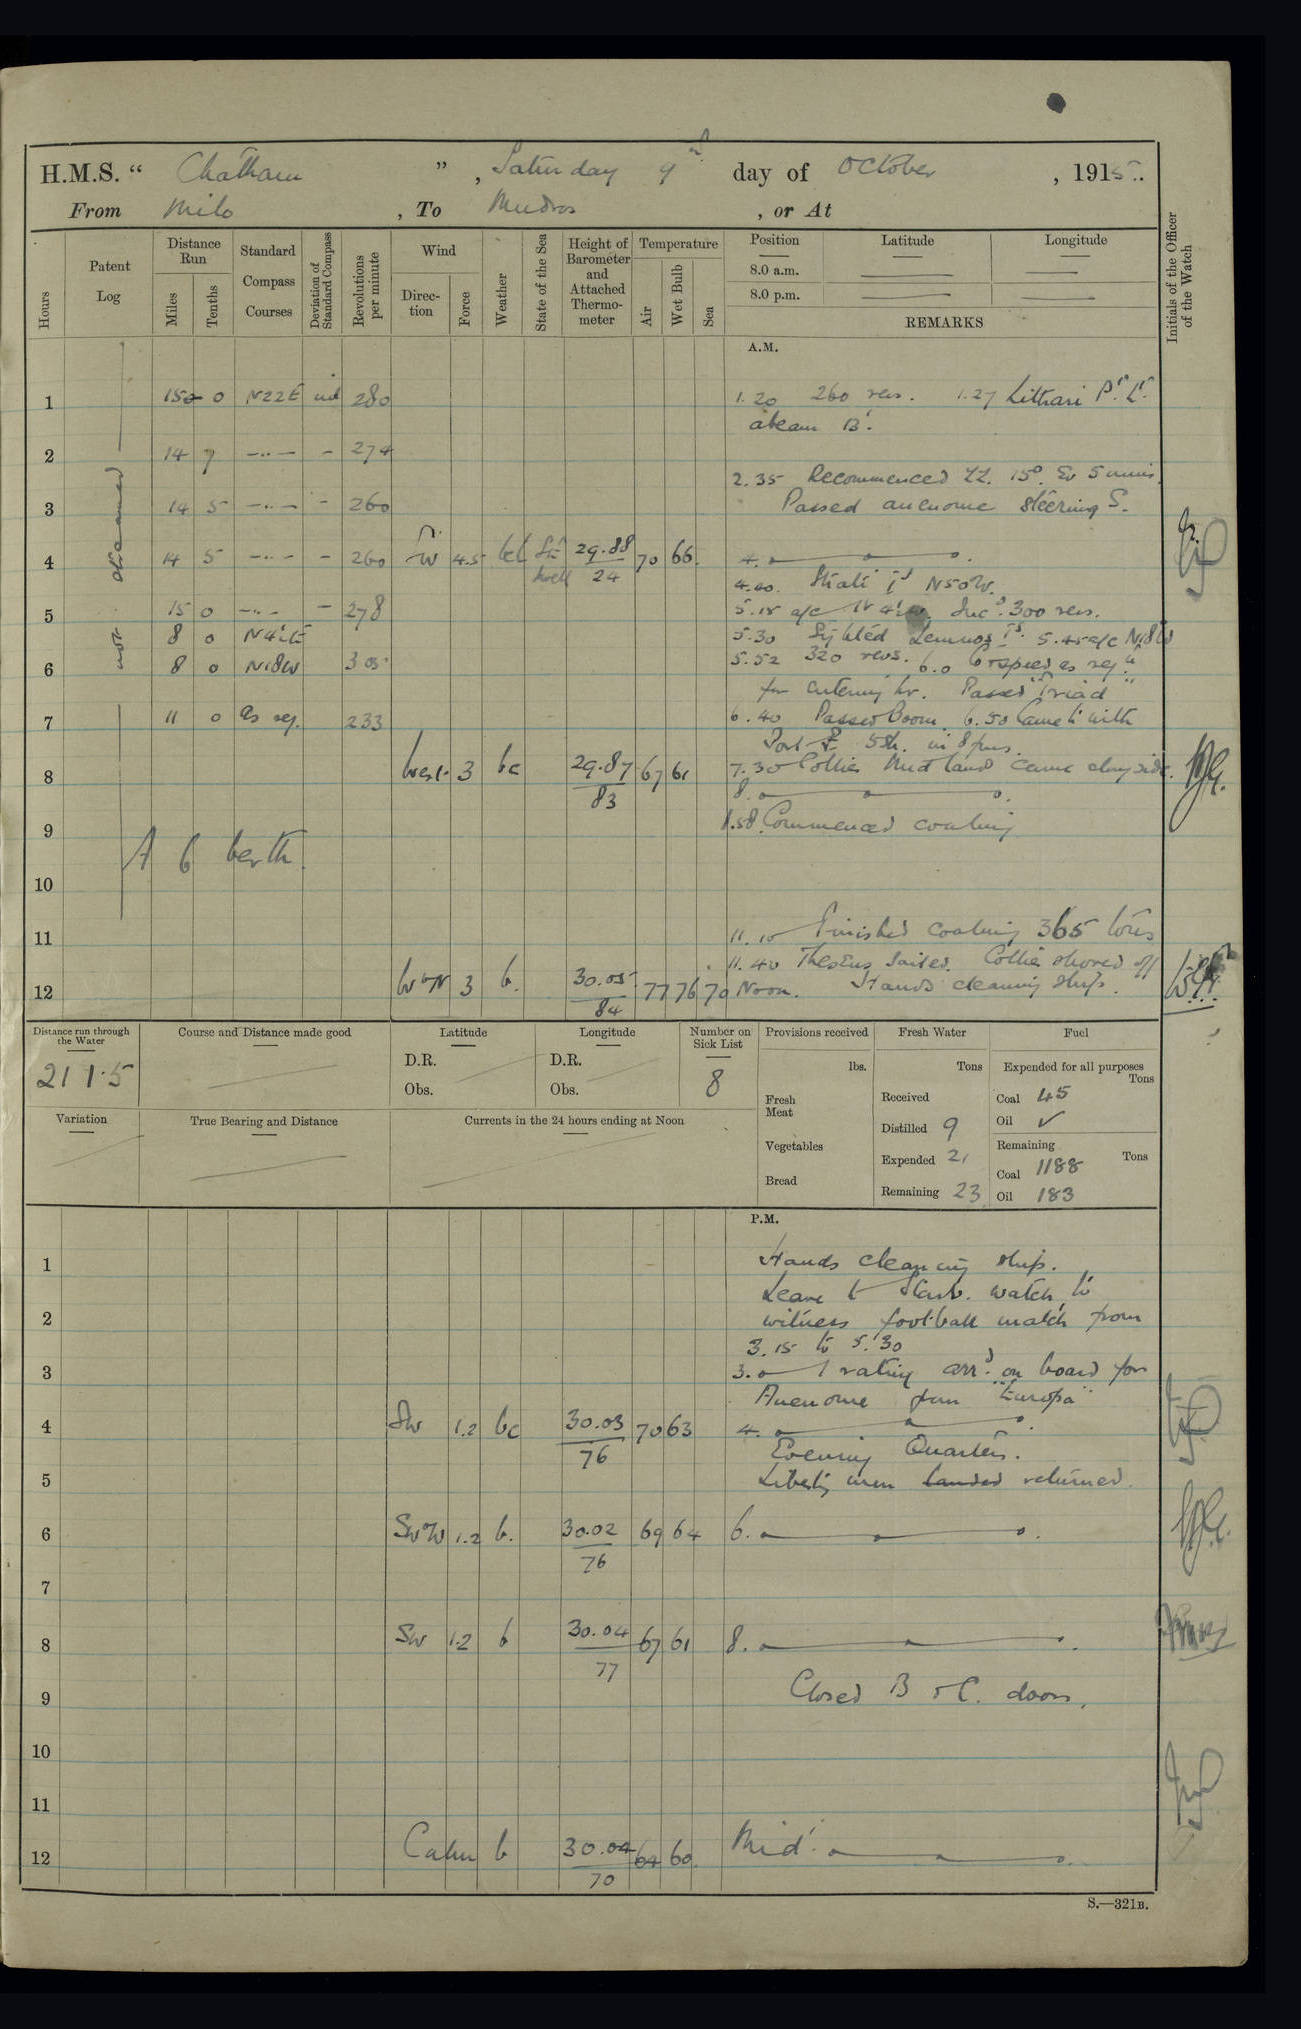 H.M.S. “ Chatham ” , Saturday 9th day of October , 1915.
From Milo , To Mudros , or At
Hours
Patent Log
Distance Run
Miles
Tenths
Standard Compass Courses
Deviation of Standard Compass
Revolutions per minute
Wind
Direction
Force
Weather
State of the Sea
Height of Barometer and Attached Thermometer
Temperature
Air
Wet Bulb
Sea
Position Latitude Longitude
8.0 a.m.
8.0 p.m.
REMARKS
Initials of the Officer of the Watch
A.M.
not streamed
1 15 0 N22E nil 280 1.20 260 revs. 1.27 Lithari Pt. Lt.
abeam
2 14 7 —..— - 274
2.35 Recommenced ZZ. 15°. Ev 5 mins.
3 14 5 —..— - 260 Passed anenome steering S.
4 14 5 —..— - 260 W 4.5 29.88 70 66 4.
swell 24
4.40. Strati Id N50W.
5 15 0 —..— - 278 5.15 a/c Incd. 300 revs.
8 0 5.30 Sighted Lemnos Id. 5.45 a/c N18W
6 8 0 N18W 305 5.52 320 revs. 6.0 Co & speed as req.
for entering hr. Passed "Triad"
7 11 0 As req. 233 6.40 Passed Boom. 6.50 Came to with
Port 5sh. in 8 fms.
8 West. 3 bc 29.87 67 61 7.30 Collier came alongside.
83 8.
9 8.58 Commenced coaling
A 6 berth.
10
11 11.10 Finished coaling 365 tons
11.40 Theseus sailed. Collier shoved off
12 WN 3 b. 30.05 77 76 70 Noon. Hands cleaning ship.
84
Distance run through the Water
211.5
Course and Distance made good
Latitude
D.R.
Obs.
Longitude
D.R.
Obs.
Number on Sick List
8
Variation
True Bearing and Distance
Currents in the 24 hours ending at Noon
Provisions received
lbs.
Fresh Meat
Vegetables
Bread
Fresh Water
Tons
Received
Distilled 9
Expended 21
Remaining 23
Fuel
Expended for all purposes
Tons
Coal 45
Oil ✓
Remaining
Tons
Coal 1188
Oil 183
P.M.
1 Hands cleaning ship.
Leave to Starb. watch to
2 witness football match from
3.15 to 5.30
3 3.0 1 rating arrd. on board for
Anenome from "Europa"
4 SW 1.2 bc 30.03 70 63 4.
76
Evening Quarters.
5 Liberty men landed returned.
6 SWW 1.2 b. 30.02 69 64 6.
76
7
8 SW 1.2 b 30.04 67 61 8.
77
9 Closed B & C. doors.
10
11
12 Calm b 30.04 64 60 Midt.
70
S.—321B.